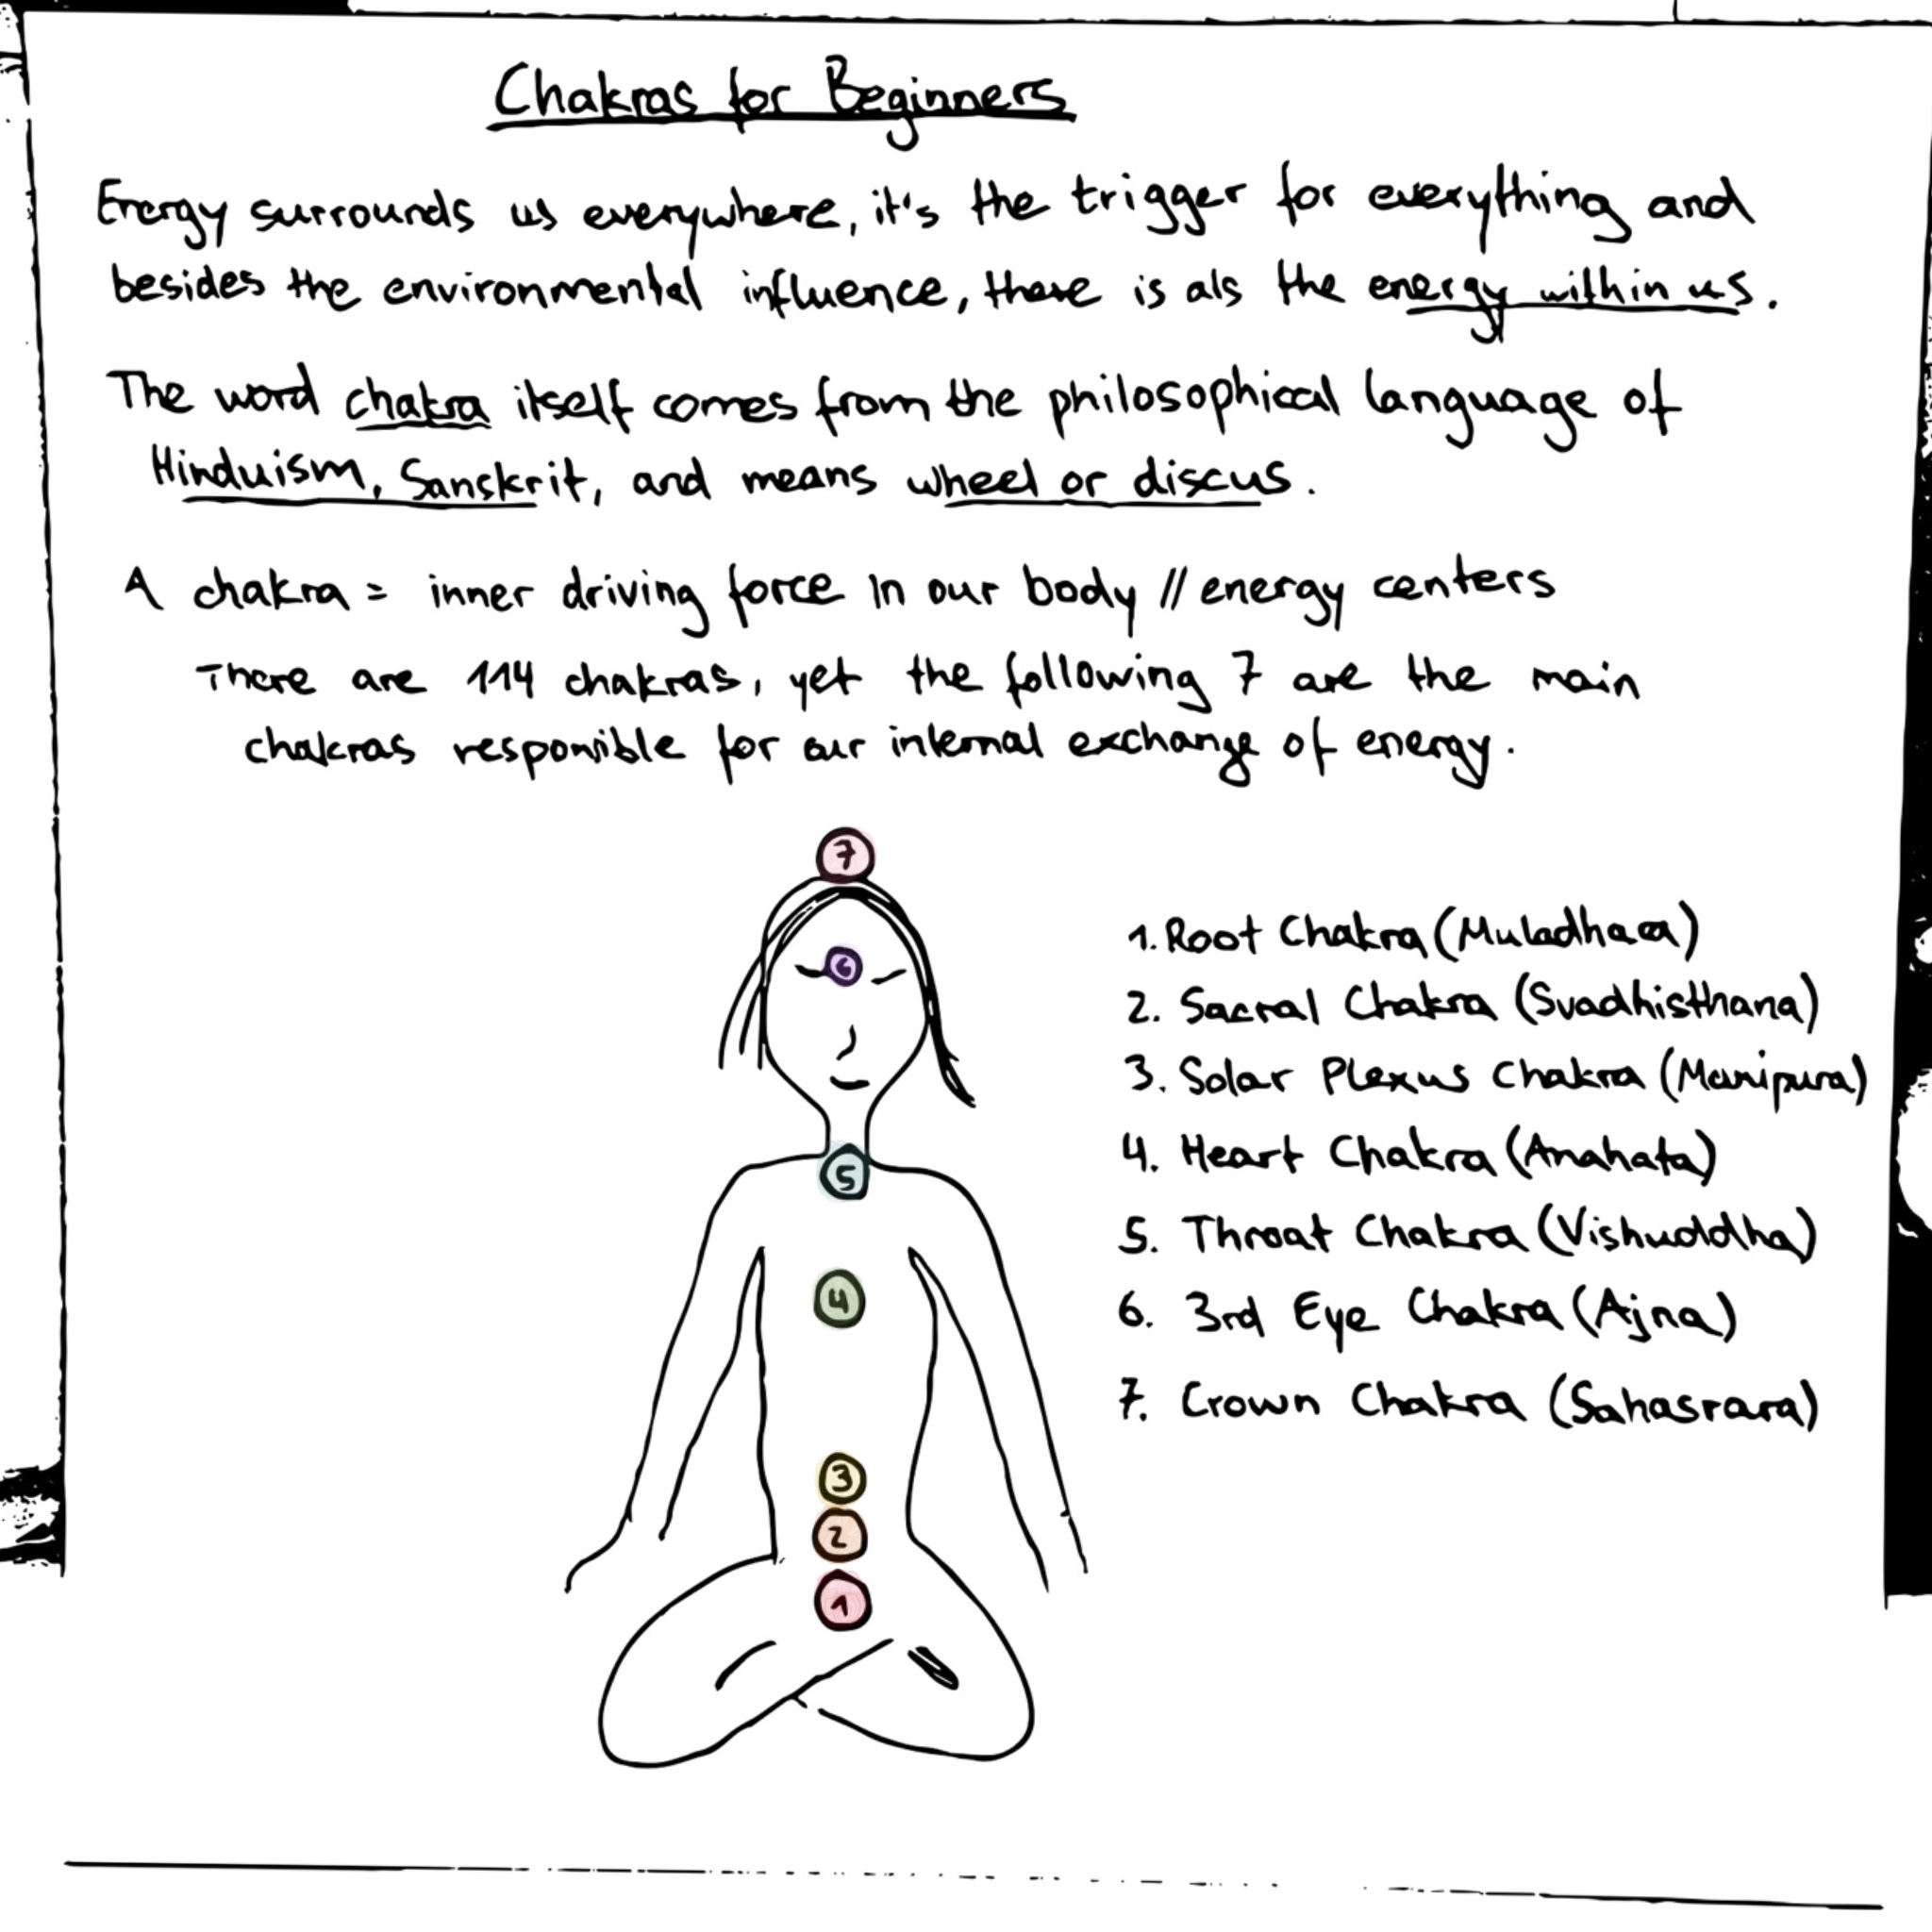 Chakras for Beginners
Energy surrounds us everywhere, it's the trigger for everything and
besides the environmental influence, there is als the energy within us.
The word chakra itself comes from the philosophical language of
Hinduism, Sanskrit, and means wheel or discus.
A chakra = inner driving force in our body // energy centers
There are 114 chakras, yet the following 7 are the main
chakras responsible for our internal exchange of energy.
7
6
5
4
3
2
1
1. Root Chakra (Muladhara)
2. Sacral Chakra (Svadhisthana)
3. Solar Plexus Chakra (Manipura)
4. Heart Chakra (Anahata)
5. Throat Chakra (Vishuddha)
6. 3rd Eye Chakra (Ajna)
7. Crown Chakra (Sahasrara)